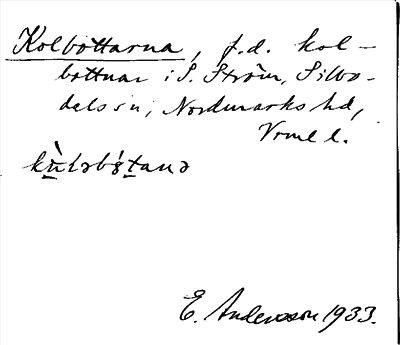 Kolbottarna, f.d. kol-
bottnar i S. Ström, Silbo-
dals sn, Nordmarks hd,
Vrml l.
E. Andersson 1933.